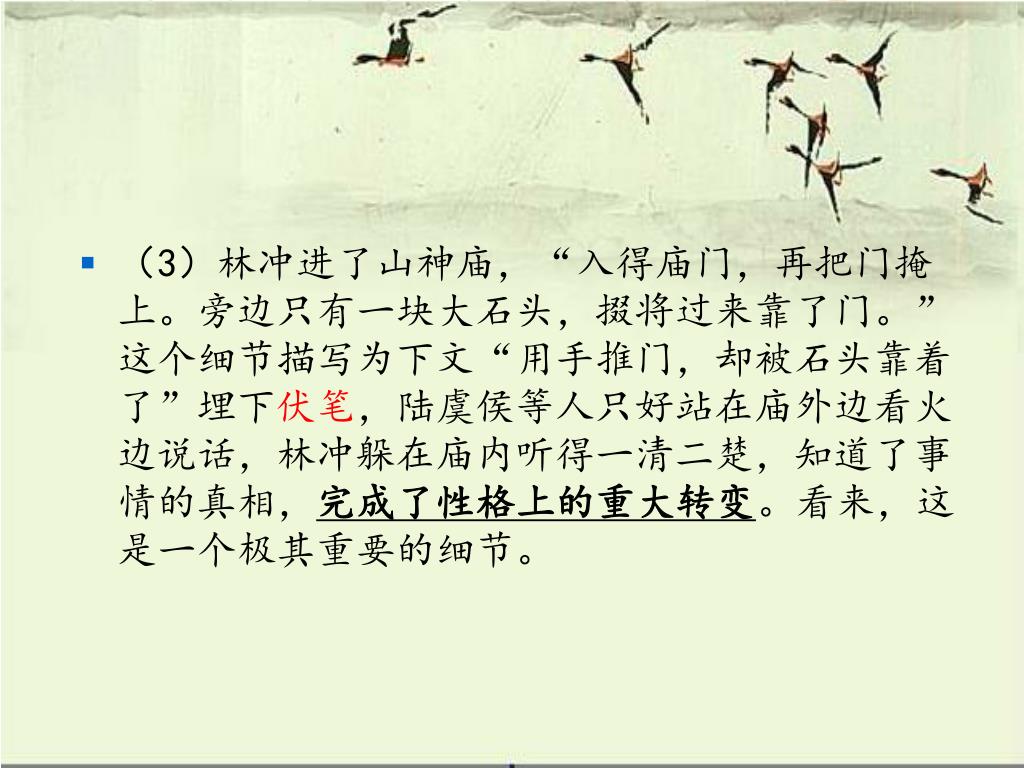 （3）林冲进了山神庙，“入得庙门，再把门掩
上。旁边只有一块大石头，掇将过来靠了门。”
这个细节描写为下文“用手推门，却被石头靠着
了”埋下伏笔，陆虞侯等人只好站在庙外边看火
边说话，林冲躲在庙内听得一清二楚，知道了事
情的真相，完成了性格上的重大转变。看来，这
是一个极其重要的细节。